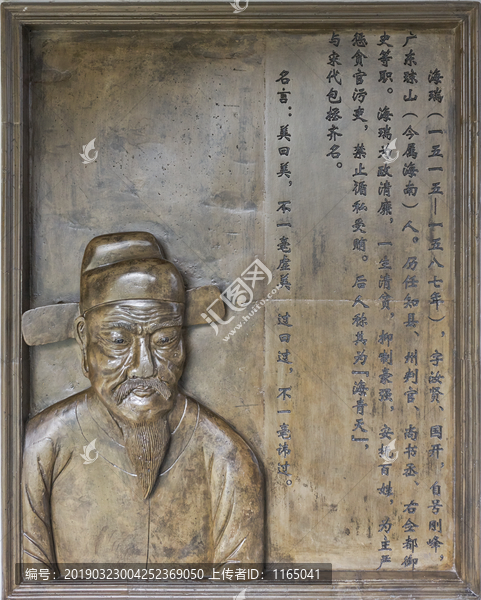 海瑞（一五一五—一五八七年），字汝贤、国开，自号刚峰，
广东琼山（今属海南）人。历任知县、州判官、尚书丞、右佥都御
史等职。海瑞为政清廉，一生清贫，抑制豪强，安抚百姓，为主严
惩贪官污吏，禁止循私受贿。后人称其为『海青天』，
与宋代包拯齐名。
名言：美曰美，不一毫虚美 过曰过，不一毫讳过。
汇图网
www.huitu.com
编号：20190323004252369050 上传者ID：1165041